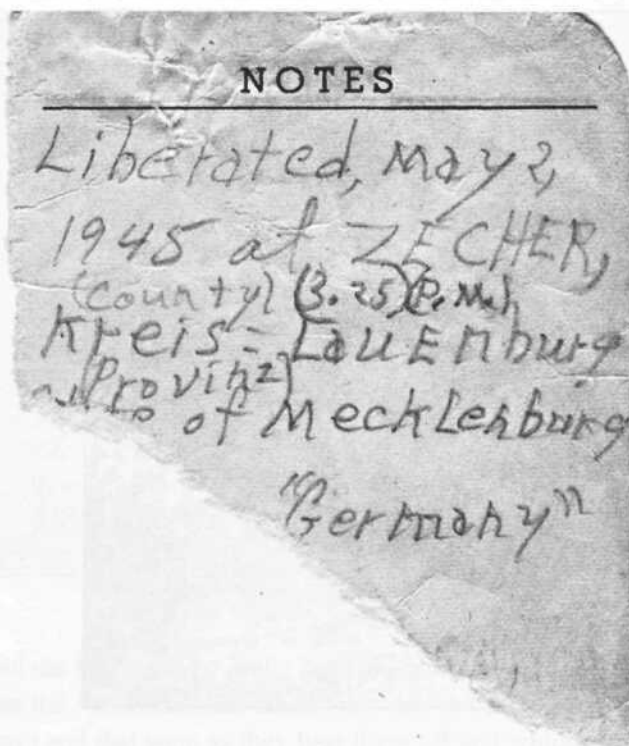 NOTES
Liberated, May 2,
1945 at ZECHER,
(County) (3.25)(P.M.),
Kreis = LauENburg
(Provinz)
of Mecklenburg
"Germany"